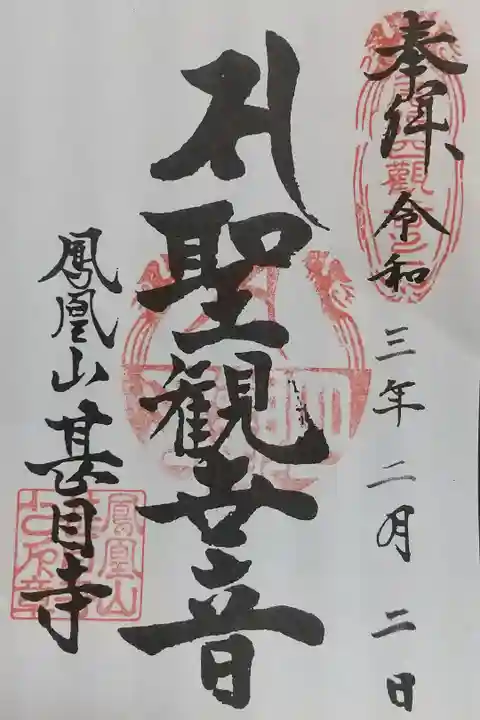 奉拝 令和三年二月二日
聖観世音
鳳凰山 甚目寺
鳳凰山